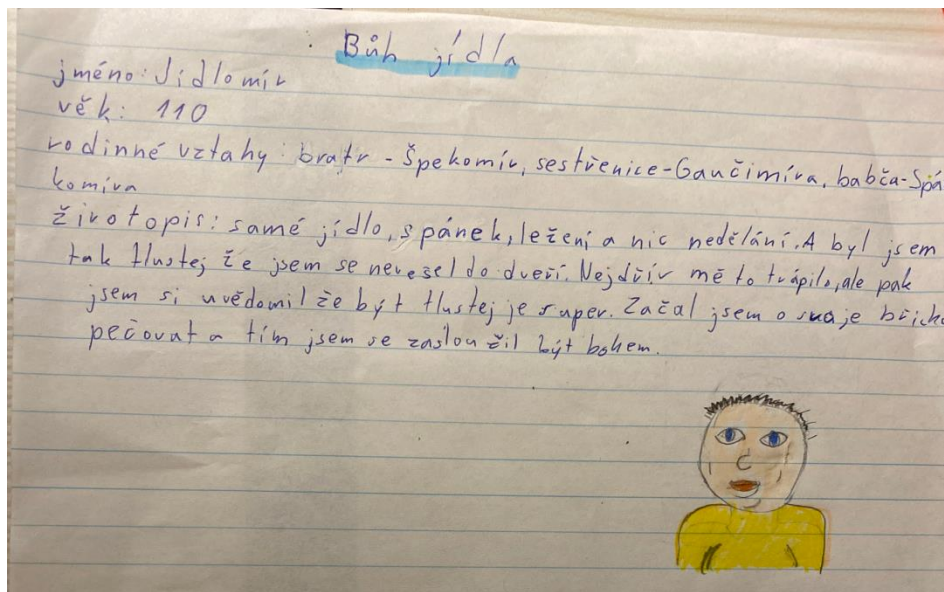 Bůh jídla
jméno: Jídlomír
věk: 110
rodinné vztahy: bratr - Špekomír, sestřenice-Gaučimíra, babča-Spá
komíra
životopis: samé jídlo, spánek, ležení a nic nedělání. A byl jsem
tak tlustej že jsem se nevešel do dveří. Nejdřív mě to trápilo, ale pak
jsem si uvědomil že být tlustej je super. Začal jsem o svoje břicho
pečovat a tím jsem se zasloužil být bohem.